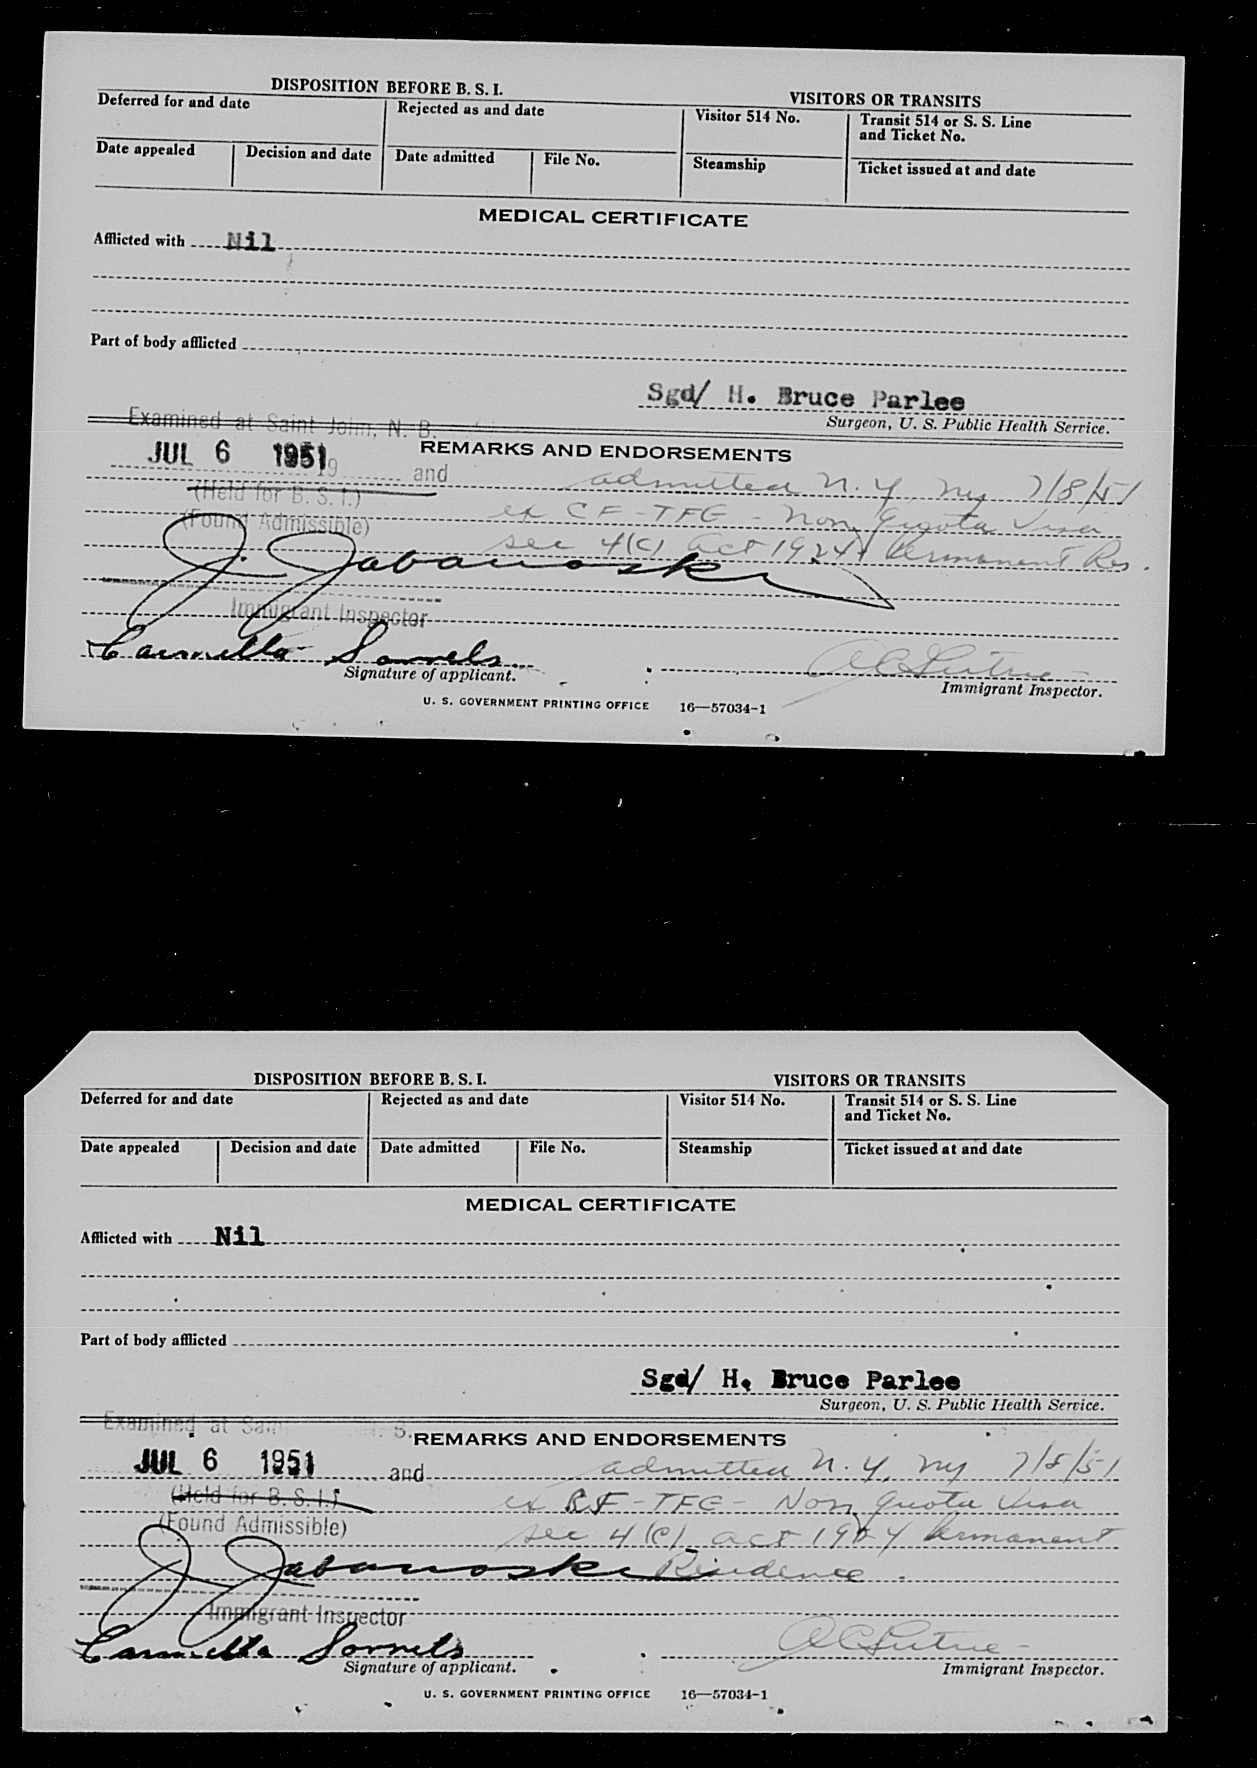 DISPOSITION BEFORE B. S. I. VISITORS OR TRANSITS
Deferred for and date Rejected as and date Visitor 514 No. Transit 514 or S. S. Line and Ticket No.
Date appealed Decision and date Date admitted File No. Steamship Ticket issued at and date
MEDICAL CERTIFICATE
Afflicted with Nil
Part of body afflicted
Sgd/ H. Bruce Parlee
Surgeon, U. S. Public Health Service.
Examined at Saint John, N. B.
REMARKS AND ENDORSEMENTS
JUL 6 1951 19 and
admitted N. Y. NY 7/8/51
(Held for B. S. I.)
ex CF-TFG - Non Quota Visa
(Found Admissible)
sec 4(c) act 1924 Permanent Res.
J. Jabanoski
Immigrant Inspector
Carmella
Signature of applicant.
Immigrant Inspector.
U. S. GOVERNMENT PRINTING OFFICE 16—57034-1
DISPOSITION BEFORE B. S. I. VISITORS OR TRANSITS
Deferred for and date Rejected as and date Visitor 514 No. Transit 514 or S. S. Line and Ticket No.
Date appealed Decision and date Date admitted File No. Steamship Ticket issued at and date
MEDICAL CERTIFICATE
Afflicted with Nil
Part of body afflicted
Sgd/ H. Bruce Parlee
Surgeon, U. S. Public Health Service.
Examined at B.
REMARKS AND ENDORSEMENTS
JUL 6 1951 and
admitted N. Y. NY 7/8/51
(Held for B. S. I.)
ex TFG - Non Quota Visa
(Found Admissible)
sec 4(c) act 1924 Permanent
J. Jabanoski Residence.
Immigrant Inspector
Carmella
Signature of applicant.
Immigrant Inspector.
U. S. GOVERNMENT PRINTING OFFICE 16—57034-1